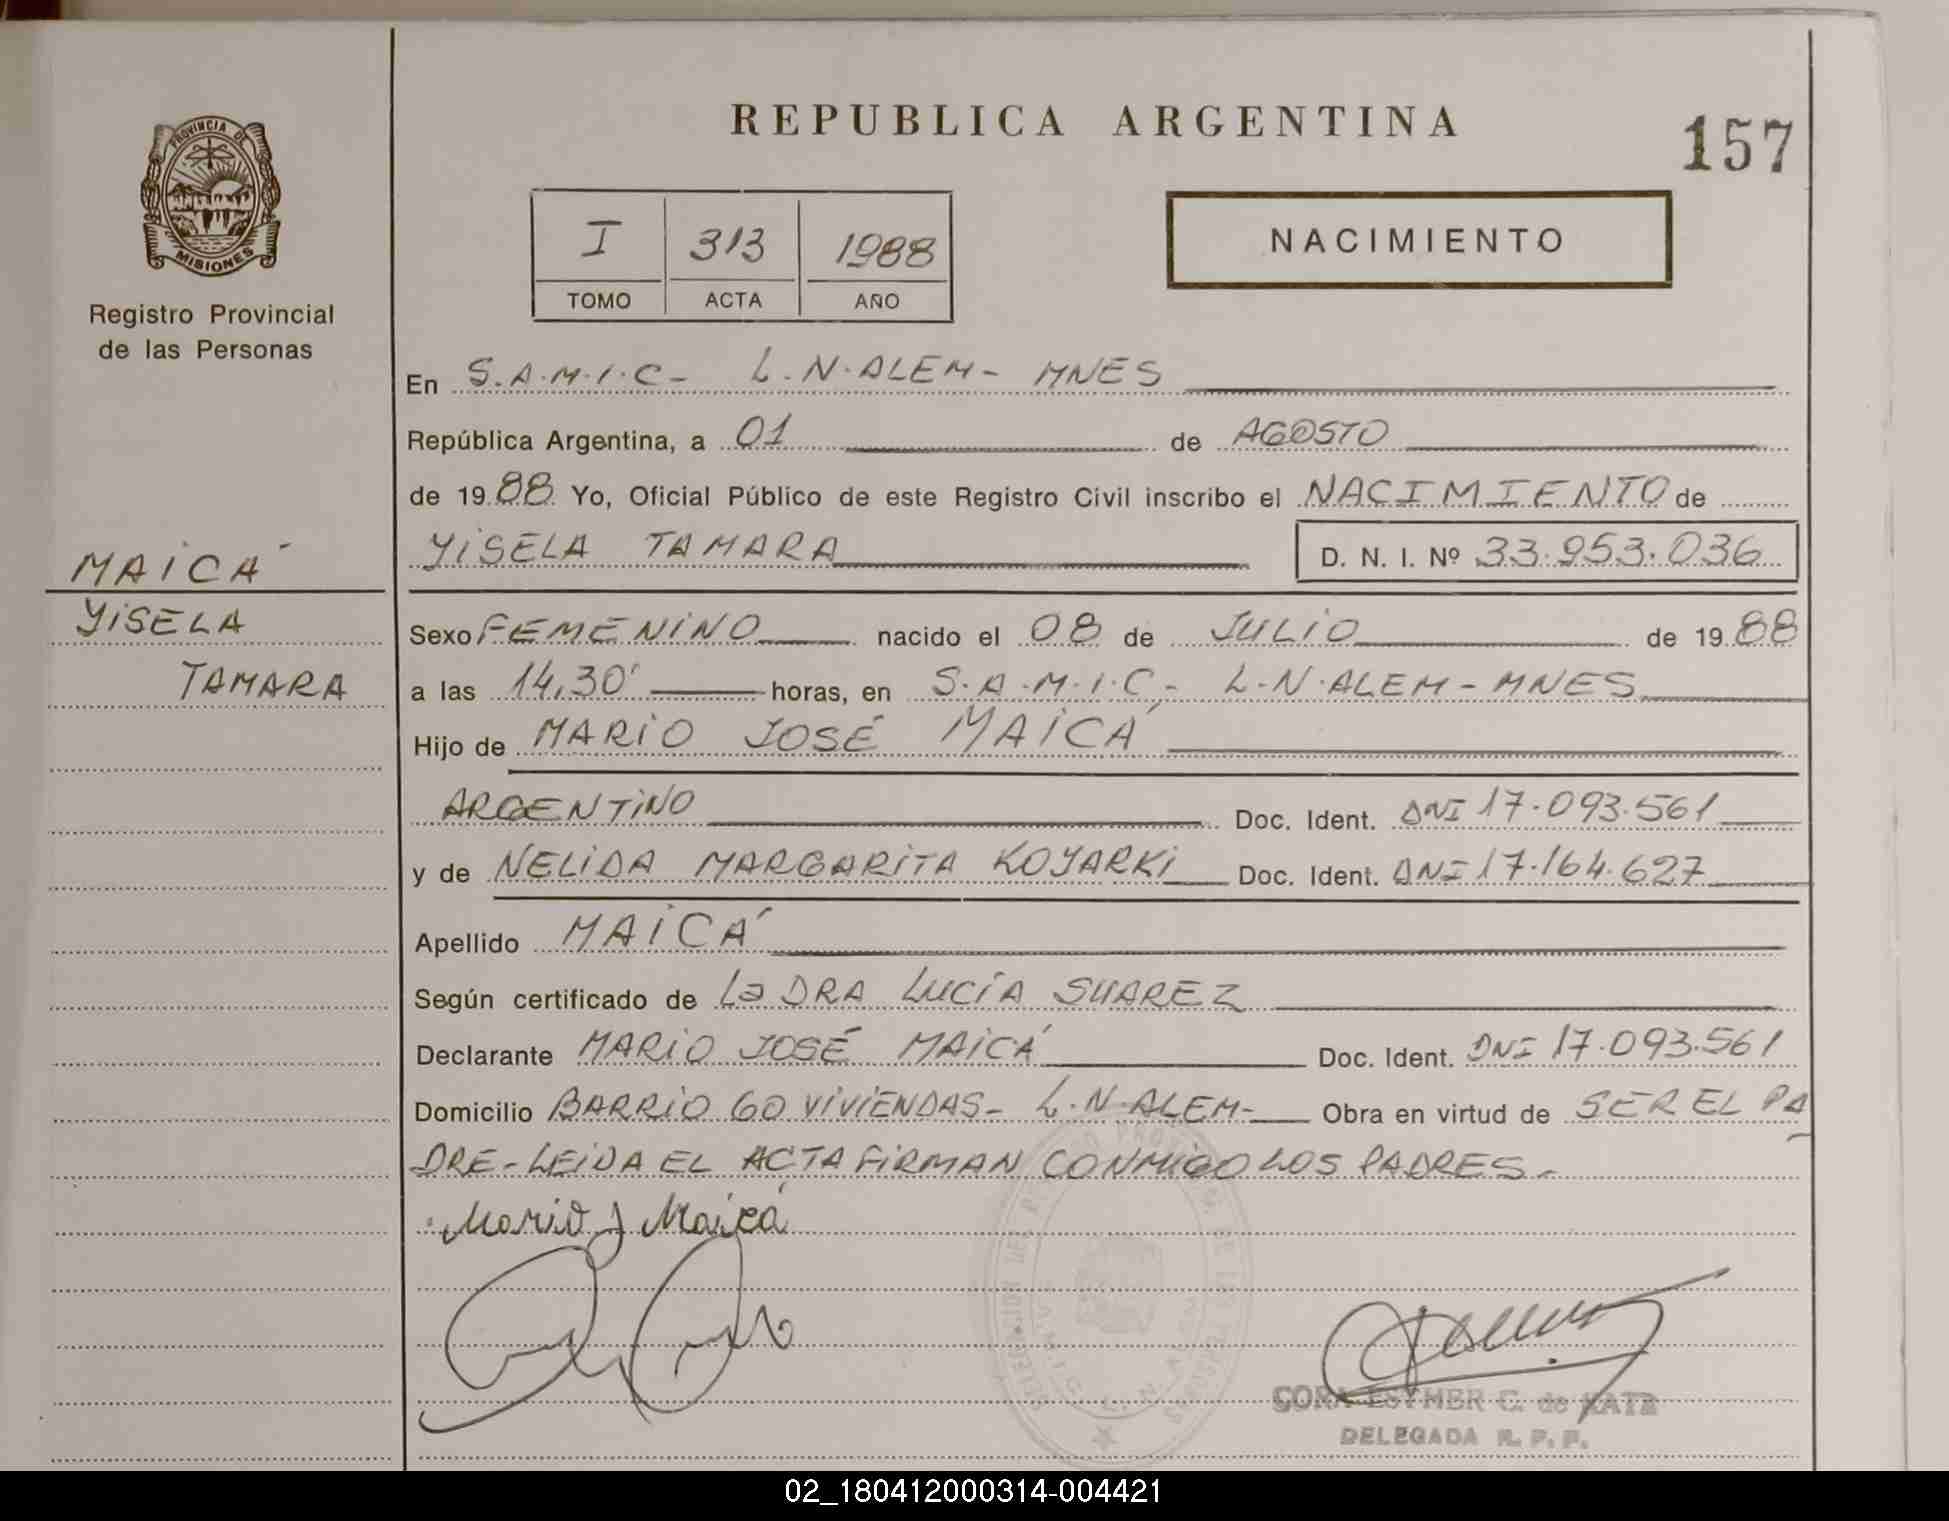 REPUBLICA ARGENTINA
157
PROVINCIA DE
MISIONES
Registro Provincial
de las Personas
I 313 1988
TOMO ACTA AÑO
NACIMIENTO
En S.A.M.I.C- L.N.ALEM- MNES
República Argentina, a 01 de AGOSTO
de 1988 Yo, Oficial Público de este Registro Civil inscribo el NACIMIENTO de
YISELA TAMARA D. N. I. Nº 33.953.036
MAICÁ
YISELA
TAMARA
Sexo FEMENINO nacido el 08 de JULIO de 1988
a las 14,30' horas, en S.A.M.I.C- L.N.ALEM-MNES
Hijo de MARIO JOSÉ MAICÁ
ARGENTINO Doc. Ident. DNI 17.093.561
y de NELIDA MARGARITA KOYARKI Doc. Ident. DNI 17.164.627
Apellido MAICÁ
Según certificado de La DRA LUCÍA SUAREZ
Declarante MARIO JOSÉ MAICÁ Doc. Ident. DNI 17.093.561
Domicilio BARRIO 60 VIVIENDAS- L.N.ALEM- Obra en virtud de SER EL PA
DRE-LEIDA EL ACTA FIRMAN CONMIGO LOS PADRES-
Mario J Maicá
CORA ESTHER C. de KATZ
DELEGADA R. P. P.
02_180412000314-004421